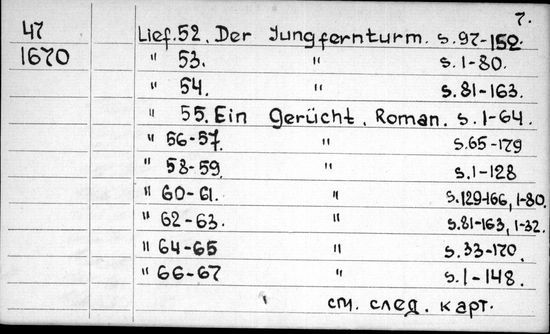 7.
47 Lief. 52. Der Jungfernturm. S. 97-152.
1670 " 53. " S. 1-80.
" 54. " S. 81-163.
" 55. Ein Gerücht. Roman. S. 1-64.
" 56-57. " S. 65-179
" 58-59. " S. 1-128
" 60-61. " S. 129-166, 1-80.
" 62-63. " S. 81-163, 1-32.
" 64-65 " S. 33-170.
" 66-67 " S. 1-148.
см. след. карт.